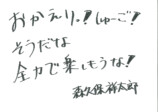 おかえり.!しゅーご!
そうだな
全力で楽しもうな!
森久保祥太郎